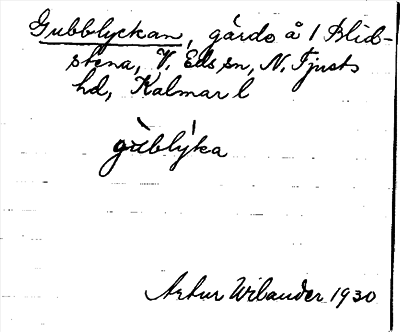 Gubblyckan, gärdo å 1 Blid-
stena, V. Eds sn, N. Tjusts
hd, Kalmar l
gùblýka
Artur Wilander 1930